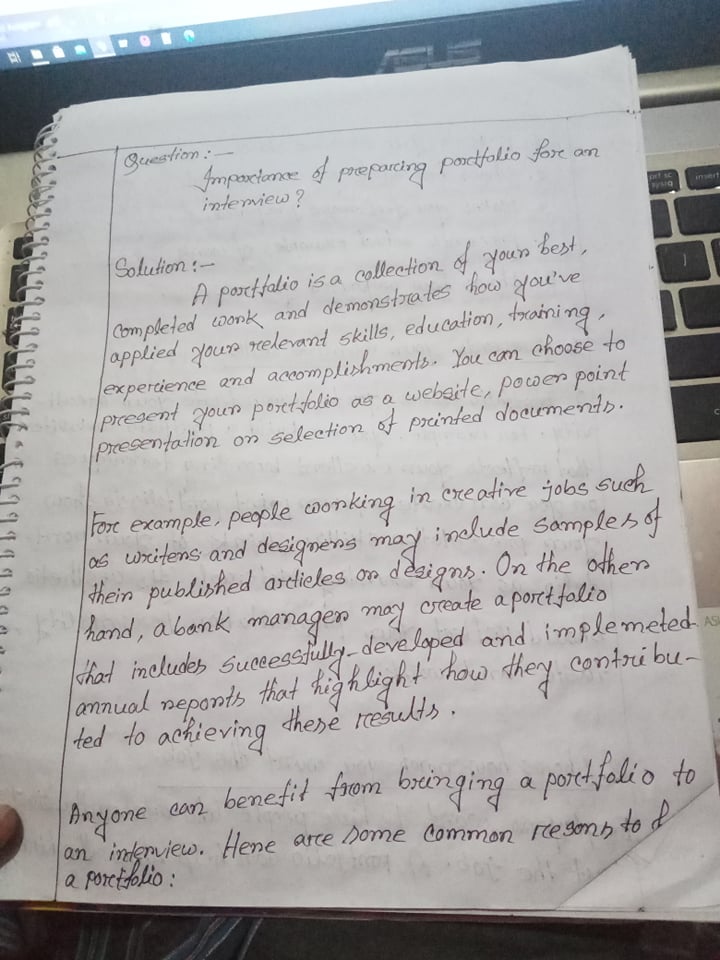 Question:-
Importance of preparing portfolio for an
interview?
Solution:-
A portfolio is a collection of your best,
completed work and demonstrates how you've
applied your relevant skills, education, training,
experience and accomplishments. You can choose to
present your portfolio as a website, power point
presentation or selection of printed documents.
For example, people working in creative jobs such
as writers and designers may include samples of
their published articles or designs. On the other
hand, a bank manager may create a portfolio
that includes successfully-developed and implemeted
annual reports that highlight how they contribu-
ted to achieving these results.
Anyone can benefit from bringing a portfolio to
an interview. Here are some common resons to
a portfolio:
prt sc
sysrq
insert